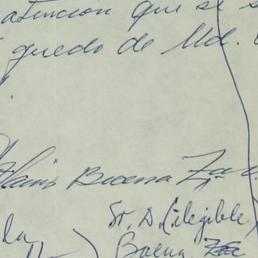 atencion que se s
quedo de Ud.
Buena Za
Sr. D. (ilegible)
la
Buena Za